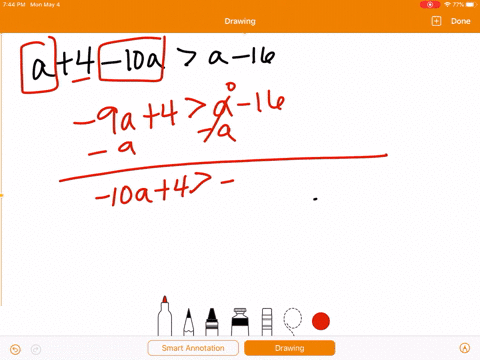 7:44 PM Mon May 4
77%
Drawing
Done
a+4-10a > a-16
-9a+4 > a 0 -16
-a -a
-10a+4 > -
Smart Annotation
Drawing